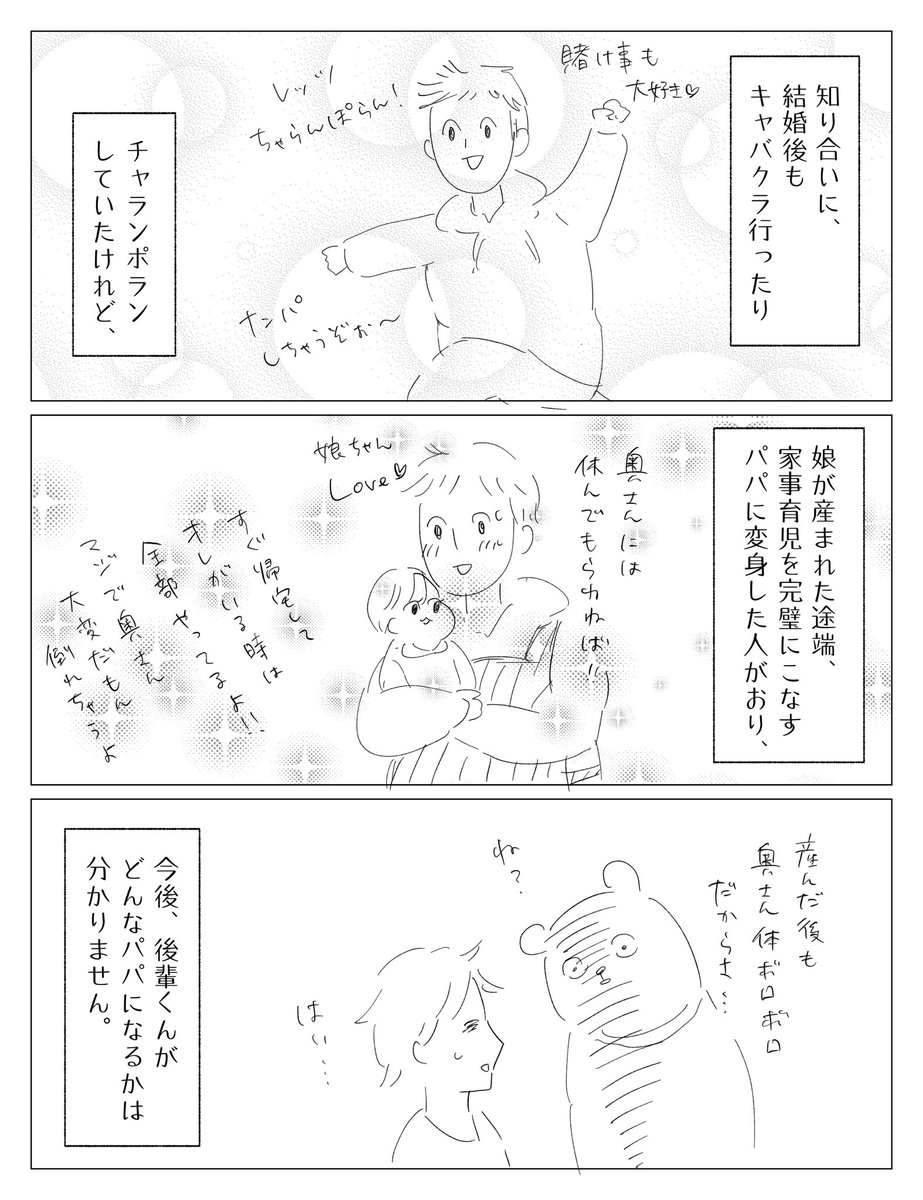 知り合いに、
結婚後も
キャバクラ行ったり
賭け事も
大好き♡
レッツ
ちゃらんぽらん!
ナンパ
しちゃうぞぉ〜
チャランポラン
していたけれど、
娘が産まれた途端、
家事育児を完璧にこなす
パパに変身した人がおり、
奥さんには
休んでもらわねば!!
娘ちゃん
Love♡
すぐ帰宅して
オレがいる時は
全部やってるよ!!
マジで奥さん
大変だもん
倒れちゃうよ
産んだ後も
奥さん体ボロボロ
だからさ…
ね?
はい…
今後、後輩くんが
どんなパパになるかは
分かりません。